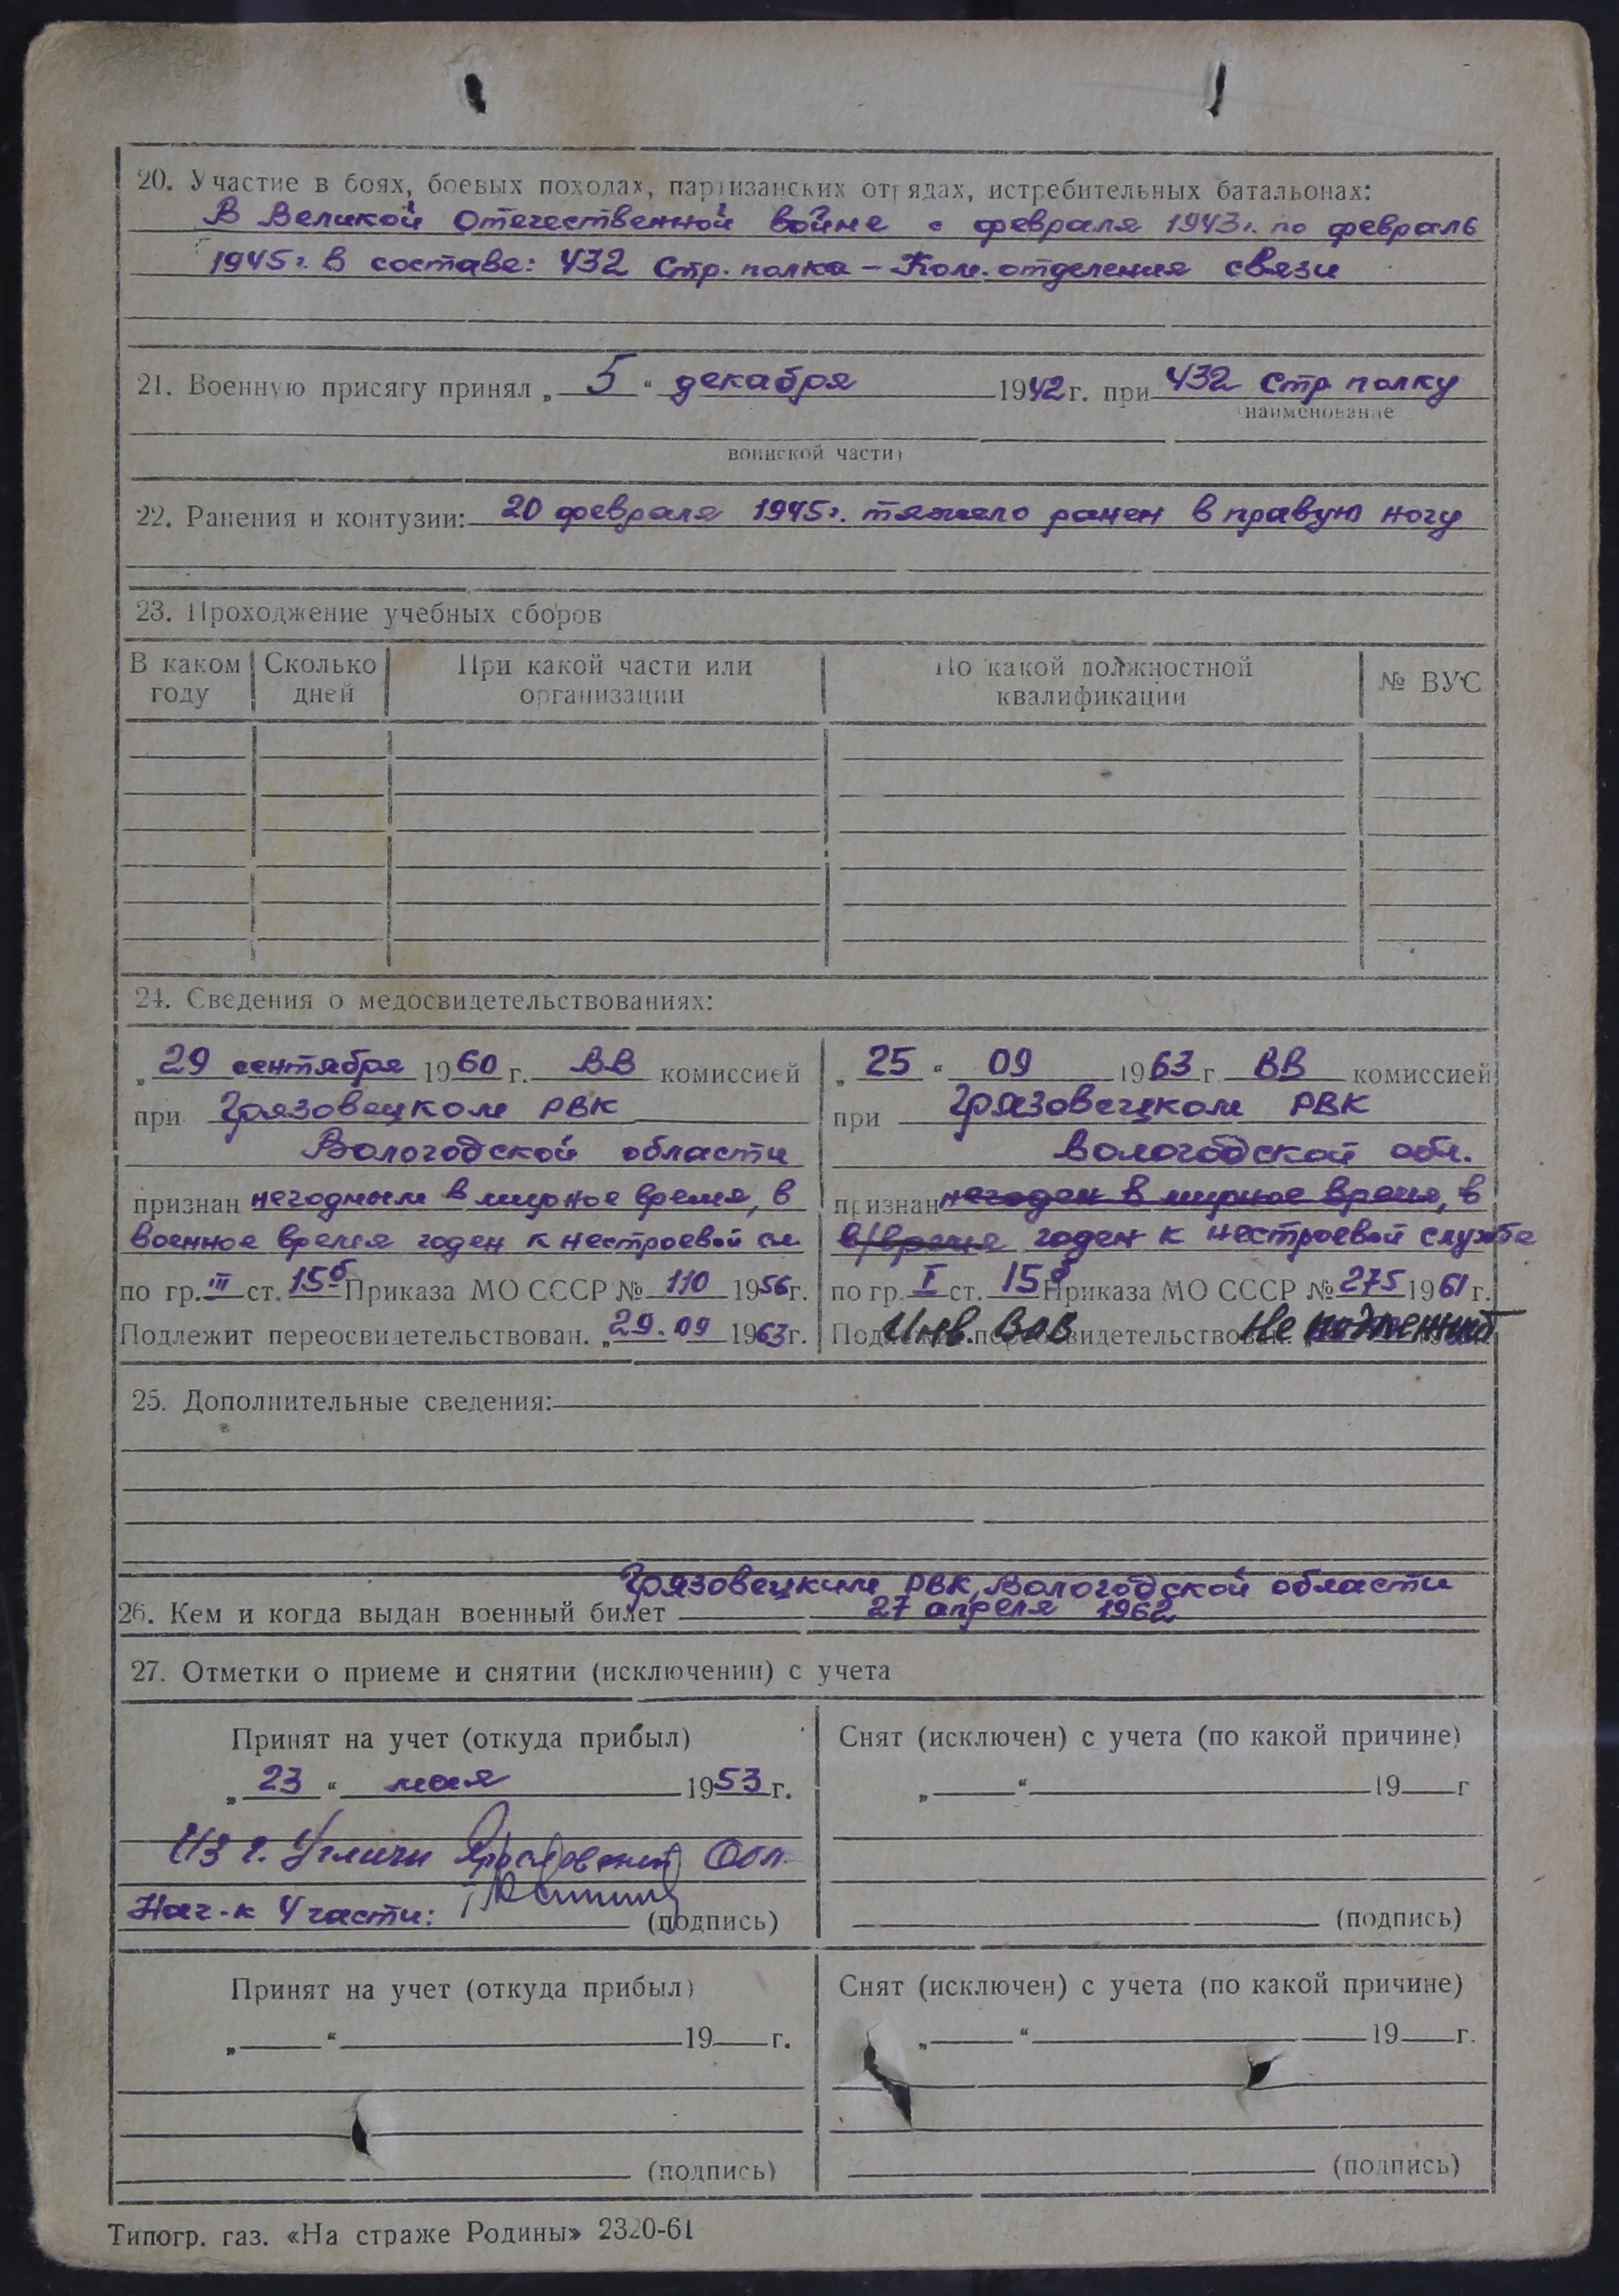 20. Участие в боях, боевых походах, партизанских отрядах, истребительных батальонах:
В Великой Отечественной войне с февраля 1943г. по февраль
1945г. в составе: 432 Стр. полка – Ком. отделения связи
21. Военную присягу принял „ 5 “ декабря 1942 г. при 432 Стр полку
(наименование
воинской части)
22. Ранения и контузии: 20 февраля 1945г. тяжело ранен в правую ногу
23. Прохождение учебных сборов
В каком году Сколько дней При какой части или организации По какой должностной квалификации № ВУС
24. Сведения о медосвидетельствованиях:
„ 29 сентября 1960 г. ВВ комиссией
при Грязовецком РВК
Вологодской области
признан негодным в мирное время, в
военное время годен к нестроевой сл
по гр. III ст. 15б Приказа МО СССР № 110 1956г.
Подлежит переосвидетельствован. „ 29. 09 1963г.
„ 25 “ 09 1963 г. ВВ комиссией
при Грязовецком РВК
Вологодской обл.
признан негоден в мирное время, в
в/время годен к нестроевой службе
по гр. I ст. 15б Приказа МО СССР № 275 1961 г.
Подлежит переосвидетельствован. Инв. ВОВ Не подлежит
25. Дополнительные сведения:
Грязовецким РВК, Вологодской области
26. Кем и когда выдан военный билет 27 апреля 1962
27. Отметки о приеме и снятии (исключении) с учета
Принят на учет (откуда прибыл)
„ 23 “ мая 1953 г.
Из г. Углича Ярославской Обл.
Нач-к 4 части: (подпись)
Снят (исключен) с учета (по какой причине)
„ “ 19 г
(подпись)
Принят на учет (откуда прибыл)
„ “ 19 г.
(подпись)
Снят (исключен) с учета (по какой причине)
„ “ 19 г.
(подпись)
Типогр. газ. «На страже Родины» 2320-61